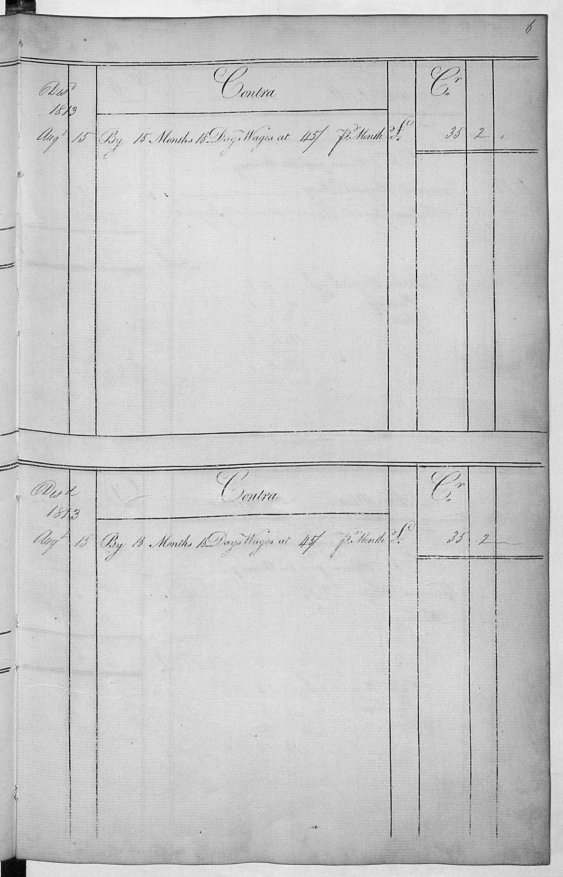 6
Contra
Cr
1813
Augt 15 By 15 Months 18 Days Wages at 45/ Pr Month £ 35 2 .
Contra
Cr
1813
Augt 15 By 15 Months 18 Days Wages at 45/ Pr Month £ 35 2 —